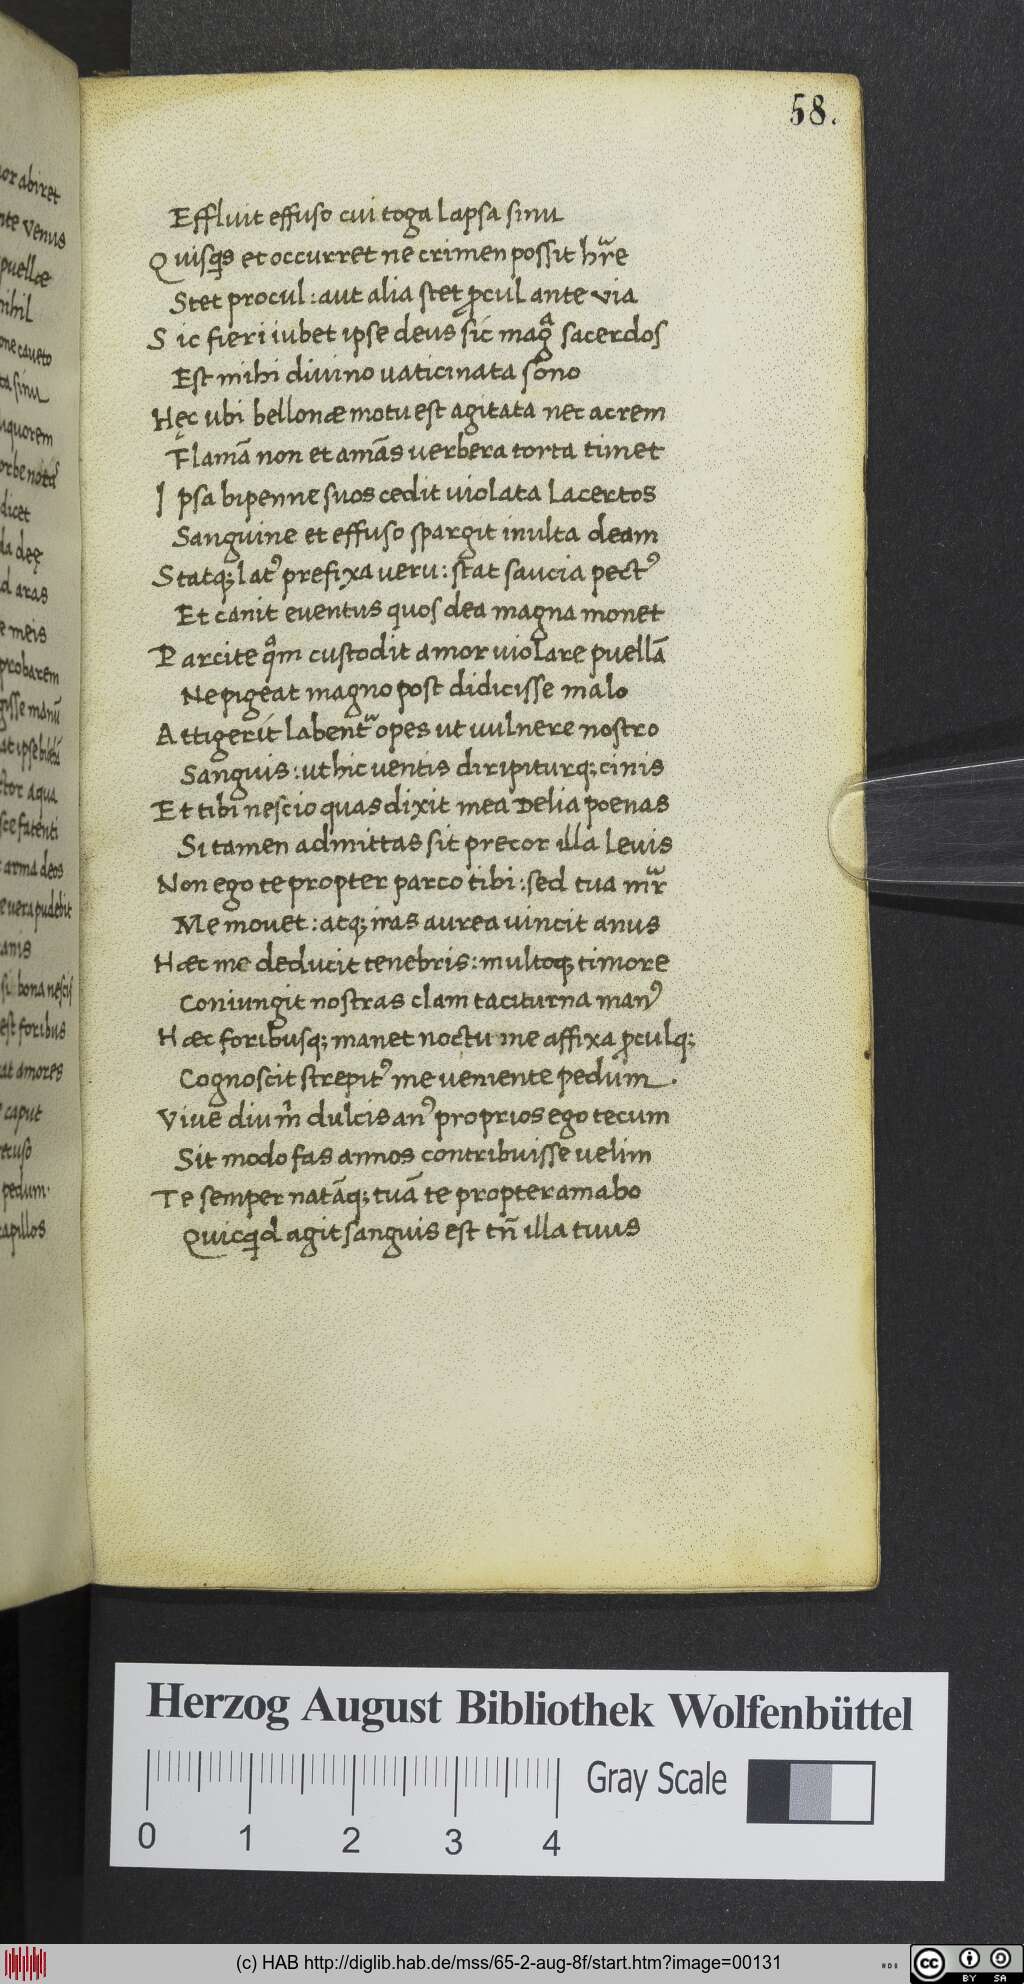 58.
Effluit effuso cui toga lapsa sinu
Quisqs et occurret ne crimen possit hr̃e
Stet procul: aut alia stet ꝓcul ante via
Sic fieri iubet ipse deus sic magª sacerdos
Est mihi diuino uaticinata sono
Hęc ubi bellonæ motu est agitata nec acrem
Flamā non et amās uerbera torta timet
Ipsa bipenne suos cedit uiolata lacertos
Sanguine et effuso spargit inulta deam
Statq; latꝰ prefixa ueru: stat saucia pectꝰ
Et canit euentus quos dea magna monet
Parcite qªm custodit amor uiolare puellā
Ne pigeat magno post didicisse malo
Attigerit labent᷑ opes ut uulnere nostro
Sanguis: ut hic uentis diripiturq; cinis
Et tibi nescio quas dixit mea Delia poenas
Si tamen admittas sit precor illa leuis
Non ego te propter parco tibi: sed tua mr̃
Me mouet: atq; iras aurea uincit anus
Hæc me deducit tenebris: multoq; timore
Coniungit nostras clam taciturna manꝰ
Hæc foribusq; manet noctu me affixa ꝓculq;
Cognoscit strepitꝰ me ueniente pedum.
Viue diu m̃ dulcis anꝰ proprios ego tecum
Sit modo fas annos contribuisse uelim
Te semper natāq; tuā te propter amabo
Quicqid agit sanguis est tñ illa tuus
Herzog August Bibliothek Wolfenbüttel
Gray Scale
0 1 2 3 4
(c) HAB http://diglib.hab.de/mss/65-2-aug-8f/start.htm?image=00131
cc BY SA